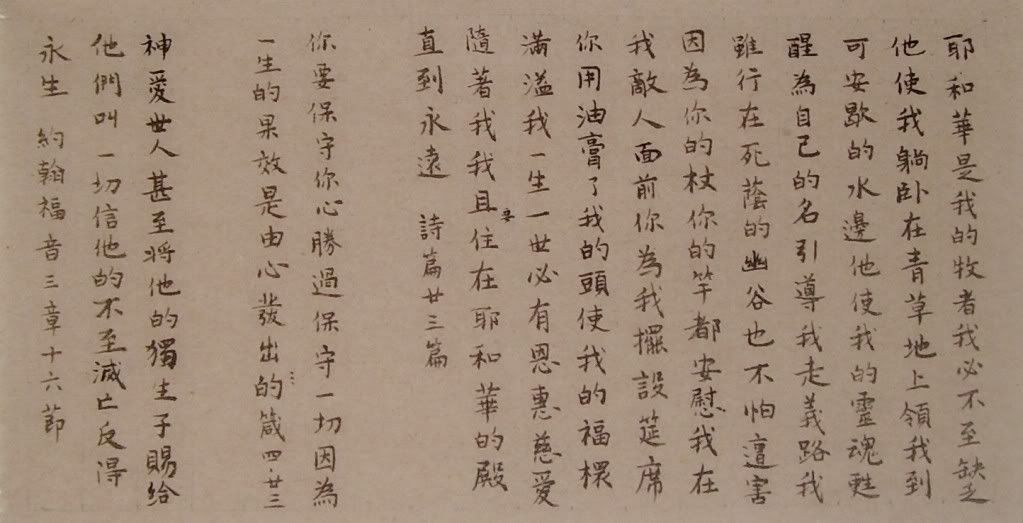 耶和華是我的牧者我必不至缺乏
他使我躺卧在青草地上領我到
可安歇的水邊他使我的靈魂甦
醒為自己的名引導我走義路我
雖行在死蔭的幽谷也不怕遭害
因為你的杖你的竿都安慰我在
我敵人面前你為我擺設筵席
你用油膏了我的頭使我的福
滿溢我一生一世必有恩惠慈愛
隨著我我且要住在耶和華的殿
直到永遠 詩篇廿三篇
你要保守你心勝過保守一切因為
一生的果效是由心發出的箴四·廿三
神愛世人甚至將他的獨生子賜給
他們叫一切信他的不至滅亡反得
永生 約翰福音三章十六節